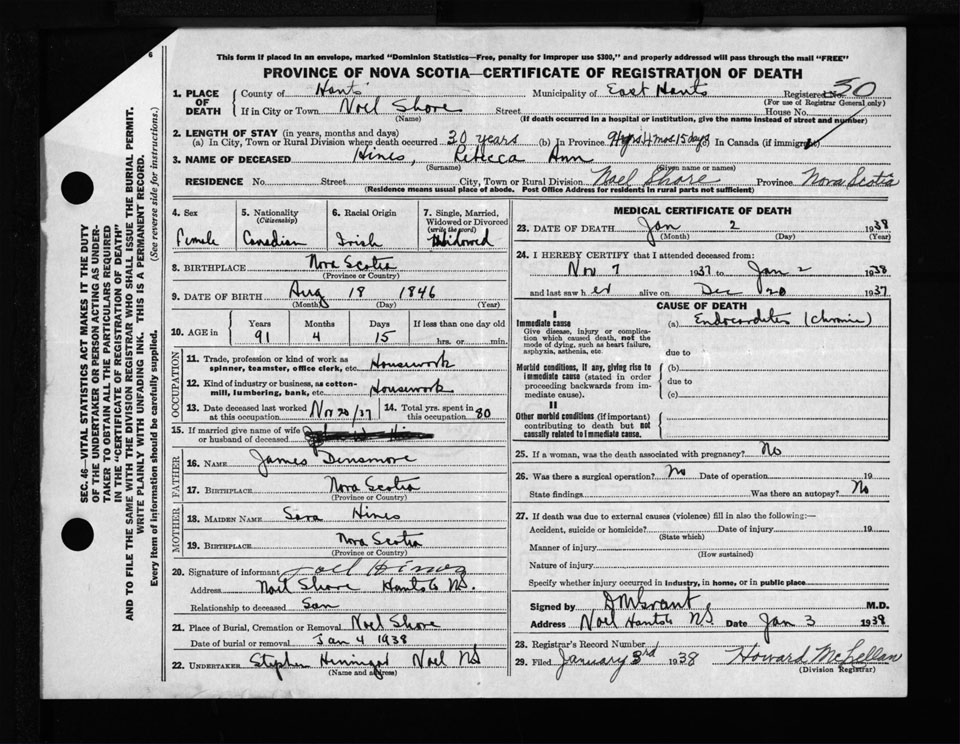 6
This form if placed in an envelope, marked "Dominion Statistics—Free, penalty for improper use $300," and properly addressed will pass through the mail "FREE"
PROVINCE OF NOVA SCOTIA—CERTIFICATE OF REGISTRATION OF DEATH
1. PLACE OF DEATH County of Hants Municipality of East Hants Registered No. 50
(For use of Registrar General only)
If in City or Town Noel Shore Street House No.
(Name) (If death occurred in a hospital or institution, give the name instead of street and number)
2. LENGTH OF STAY (in years, months and days)
(a) In City, Town or Rural Division where death occurred 30 years (b) In Province 91 yrs 4 mos 15 days (c) In Canada (if immigrant)
3. NAME OF DECEASED Hines, Rebecca Ann
(Surname) (Given name or names)
RESIDENCE No. Street City, Town or Rural Division Noel Shore Province Nova Scotia
(Residence means usual place of abode. Post Office Address for residents in rural parts not sufficient)
4. Sex 5. Nationality (Citizenship) 6. Racial Origin 7. Single, Married, Widowed or Divorced (write the word)
Female Canadian Irish Widowed
8. BIRTHPLACE Nova Scotia
(Province or Country)
9. DATE OF BIRTH Aug 18 1846
(Month) (Day) (Year)
10. AGE in Years Months Days If less than one day old
91 4 15 hrs. or min.
OCCUPATION
11. Trade, profession or kind of work as spinner, teamster, office clerk, etc. Housework
12. Kind of industry or business, as cotton-mill, lumbering, bank, etc. Housework
13. Date deceased last worked at this occupation Nov 20/37 14. Total yrs. spent in this occupation 80
15. If married give name of wife or husband of deceased
FATHER
16. NAME James Densmore
17. BIRTHPLACE Nova Scotia
(Province or Country)
MOTHER
18. MAIDEN NAME Sara Hines
19. BIRTHPLACE Nova Scotia
(Province or Country)
20. Signature of informant Joel Hines
Address Noel Shore Hants Co NS.
Relationship to deceased Son
21. Place of Burial, Cremation or Removal Noel Shore
Date of burial or removal Jan 4 1938
22. UNDERTAKER Stephen Noel NS
(Name and address)
MEDICAL CERTIFICATE OF DEATH
23. DATE OF DEATH Jan 2 1938
(Month) (Day) (Year)
24. I HEREBY CERTIFY that I attended deceased from:
Nov 7 1937 to Jan 2 1938
and last saw h er alive on Dec 20 1937
CAUSE OF DEATH
I
Immediate cause
Give disease, injury or complication which caused death, not the mode of dying, such as heart failure, asphyxia, asthenia, etc.
(a) Endocarditis (chronic)
due to
Morbid conditions, if any, giving rise to immediate cause (stated in order proceeding backwards from immediate cause).
(b)
due to
(c)
II
Other morbid conditions (if important) contributing to death but not causally related to immediate cause.
25. If a woman, was the death associated with pregnancy? No
26. Was there a surgical operation? No Date of operation 19
State findings Was there an autopsy? No
27. If death was due to external causes (violence) fill in also the following:—
Accident, suicide or homicide? Date of injury 19
(State which)
Manner of injury
(How sustained)
Nature of injury
Specify whether injury occurred in industry, in home, or in public place
Signed by DM Grant M.D.
Address Noel Hants Co NS Date Jan 3 1938
28. Registrar's Record Number
29. Filed January 3rd 1938 Howard McLellan
(Division Registrar)
SEC. 46—VITAL STATISTICS ACT MAKES IT THE DUTY
OF THE UNDERTAKER OR PERSON ACTING AS UNDER-
TAKER TO OBTAIN ALL THE PARTICULARS REQUIRED
IN THE "CERTIFICATE OF REGISTRATION OF DEATH"
AND TO FILE THE SAME WITH THE DIVISION REGISTRAR WHO SHALL ISSUE THE BURIAL PERMIT.
WRITE PLAINLY WITH UNFADING INK. THIS IS A PERMANENT RECORD.
Every item of information should be carefully supplied. (See reverse side for instructions.)